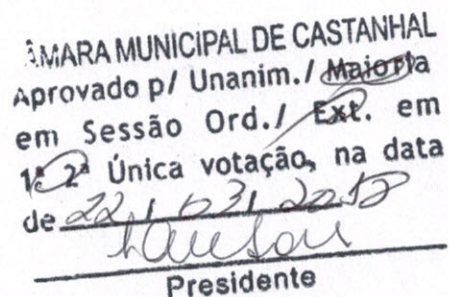 ÂMARA MUNICIPAL DE CASTANHAL
Aprovado p/ Unanim./ Maioria
em Sessão Ord./ Ext. em
1ª 2ª Única votação, na data
de 22 / 03 /
Presidente